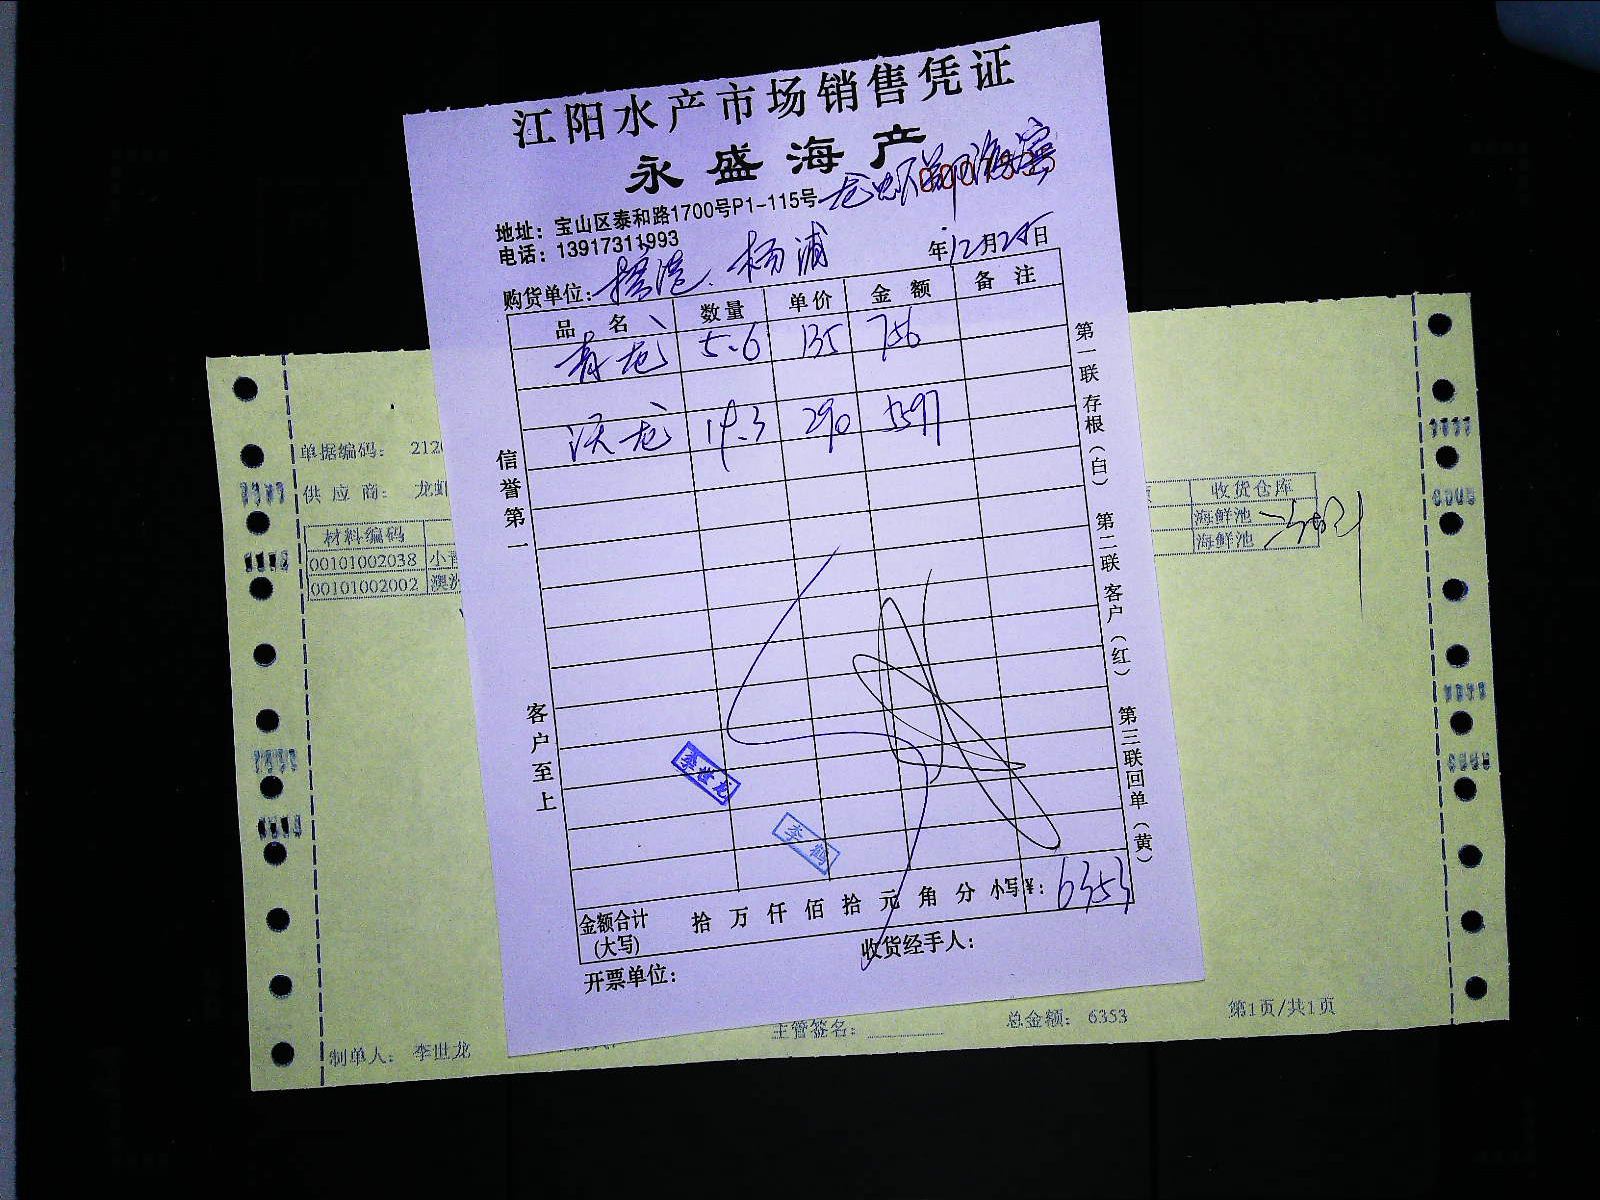 江阳水产市场销售凭证
永盛海产
地址：宝山区泰和路1700号P1-115号
电话：13917311993
年12月25日
购货单位： 杨浦
品名 数量 单价 金额 备注
青龙 5.6 135 756
沃龙 19.3 290 5597
信誉第一
客户至上
第一联存根（白）
第二联客户（红）
第三联回单（黄）
李世龙
李鹤
金额合计（大写） 拾 万 仟 佰 拾 元 角 分 小写¥： 6353
开票单位： 收货经手人：
单据编码： 212
供应商： 龙虾
材料编码 收货仓库
00101002038 小青 海鲜池
00101002002 澳洲 海鲜池
制单人： 李世龙 主管签名： 总金额： 6353 第1页/共1页